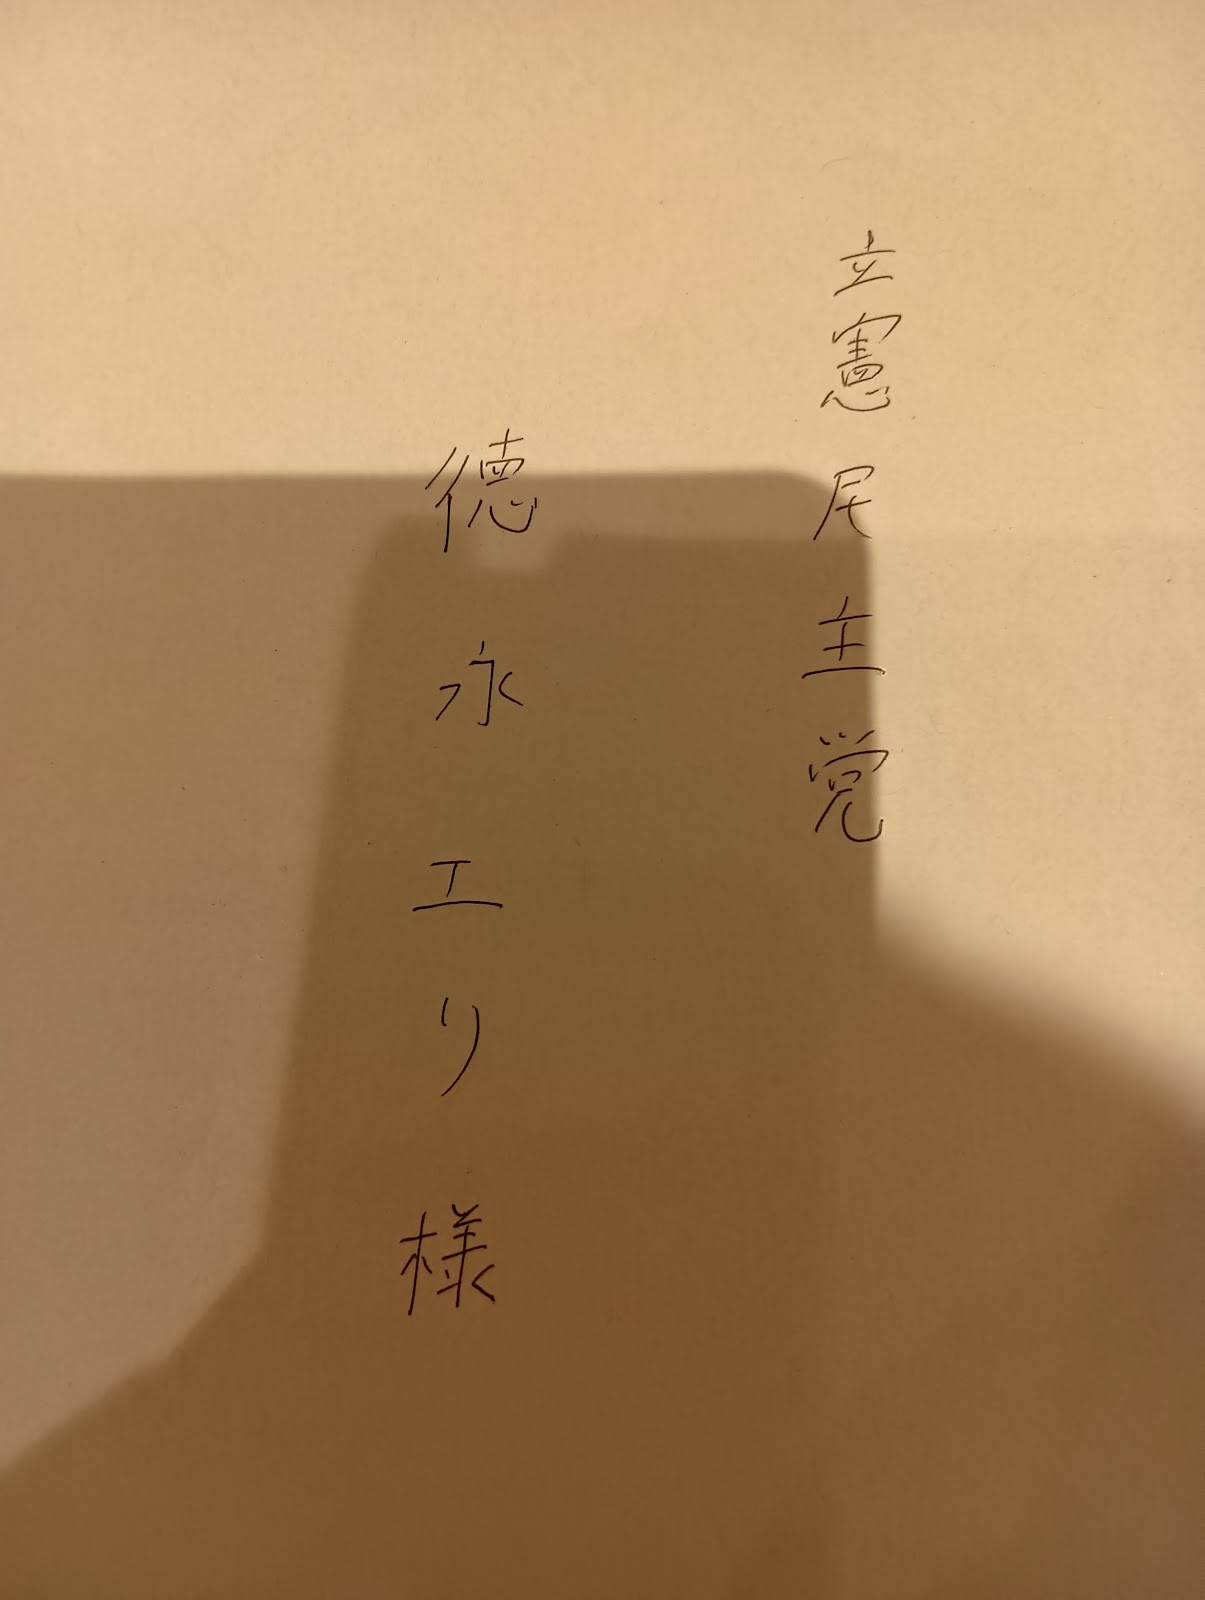 立憲民主党
徳永エリ様